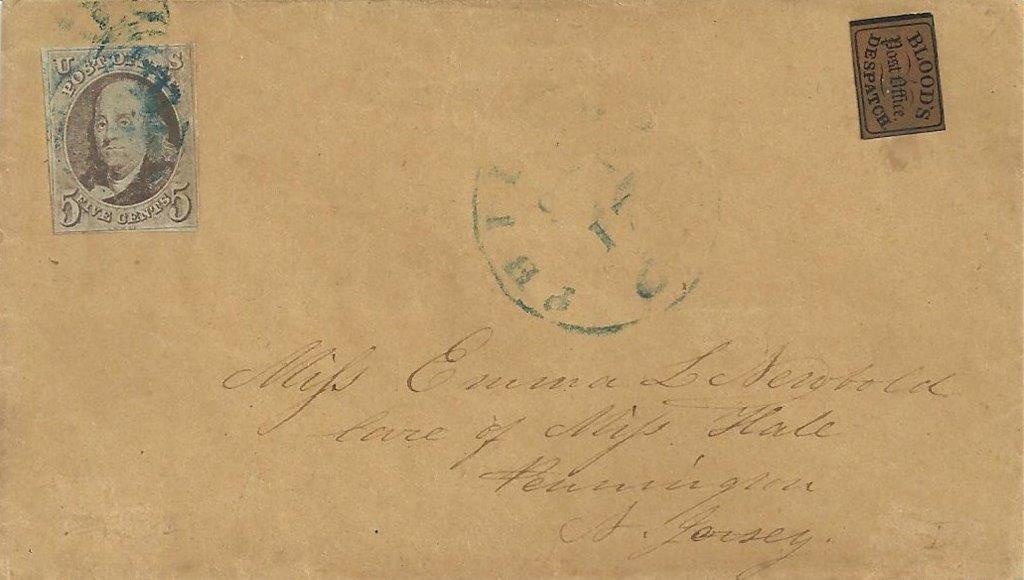 U S
POST OFFICE
5 FIVE CENTS 5
BLOOD'S
Post Office
DESPATCH
PHIL
Miss Emma L Newbold
Care of Miss Hale
Pennington
N. Jersey.